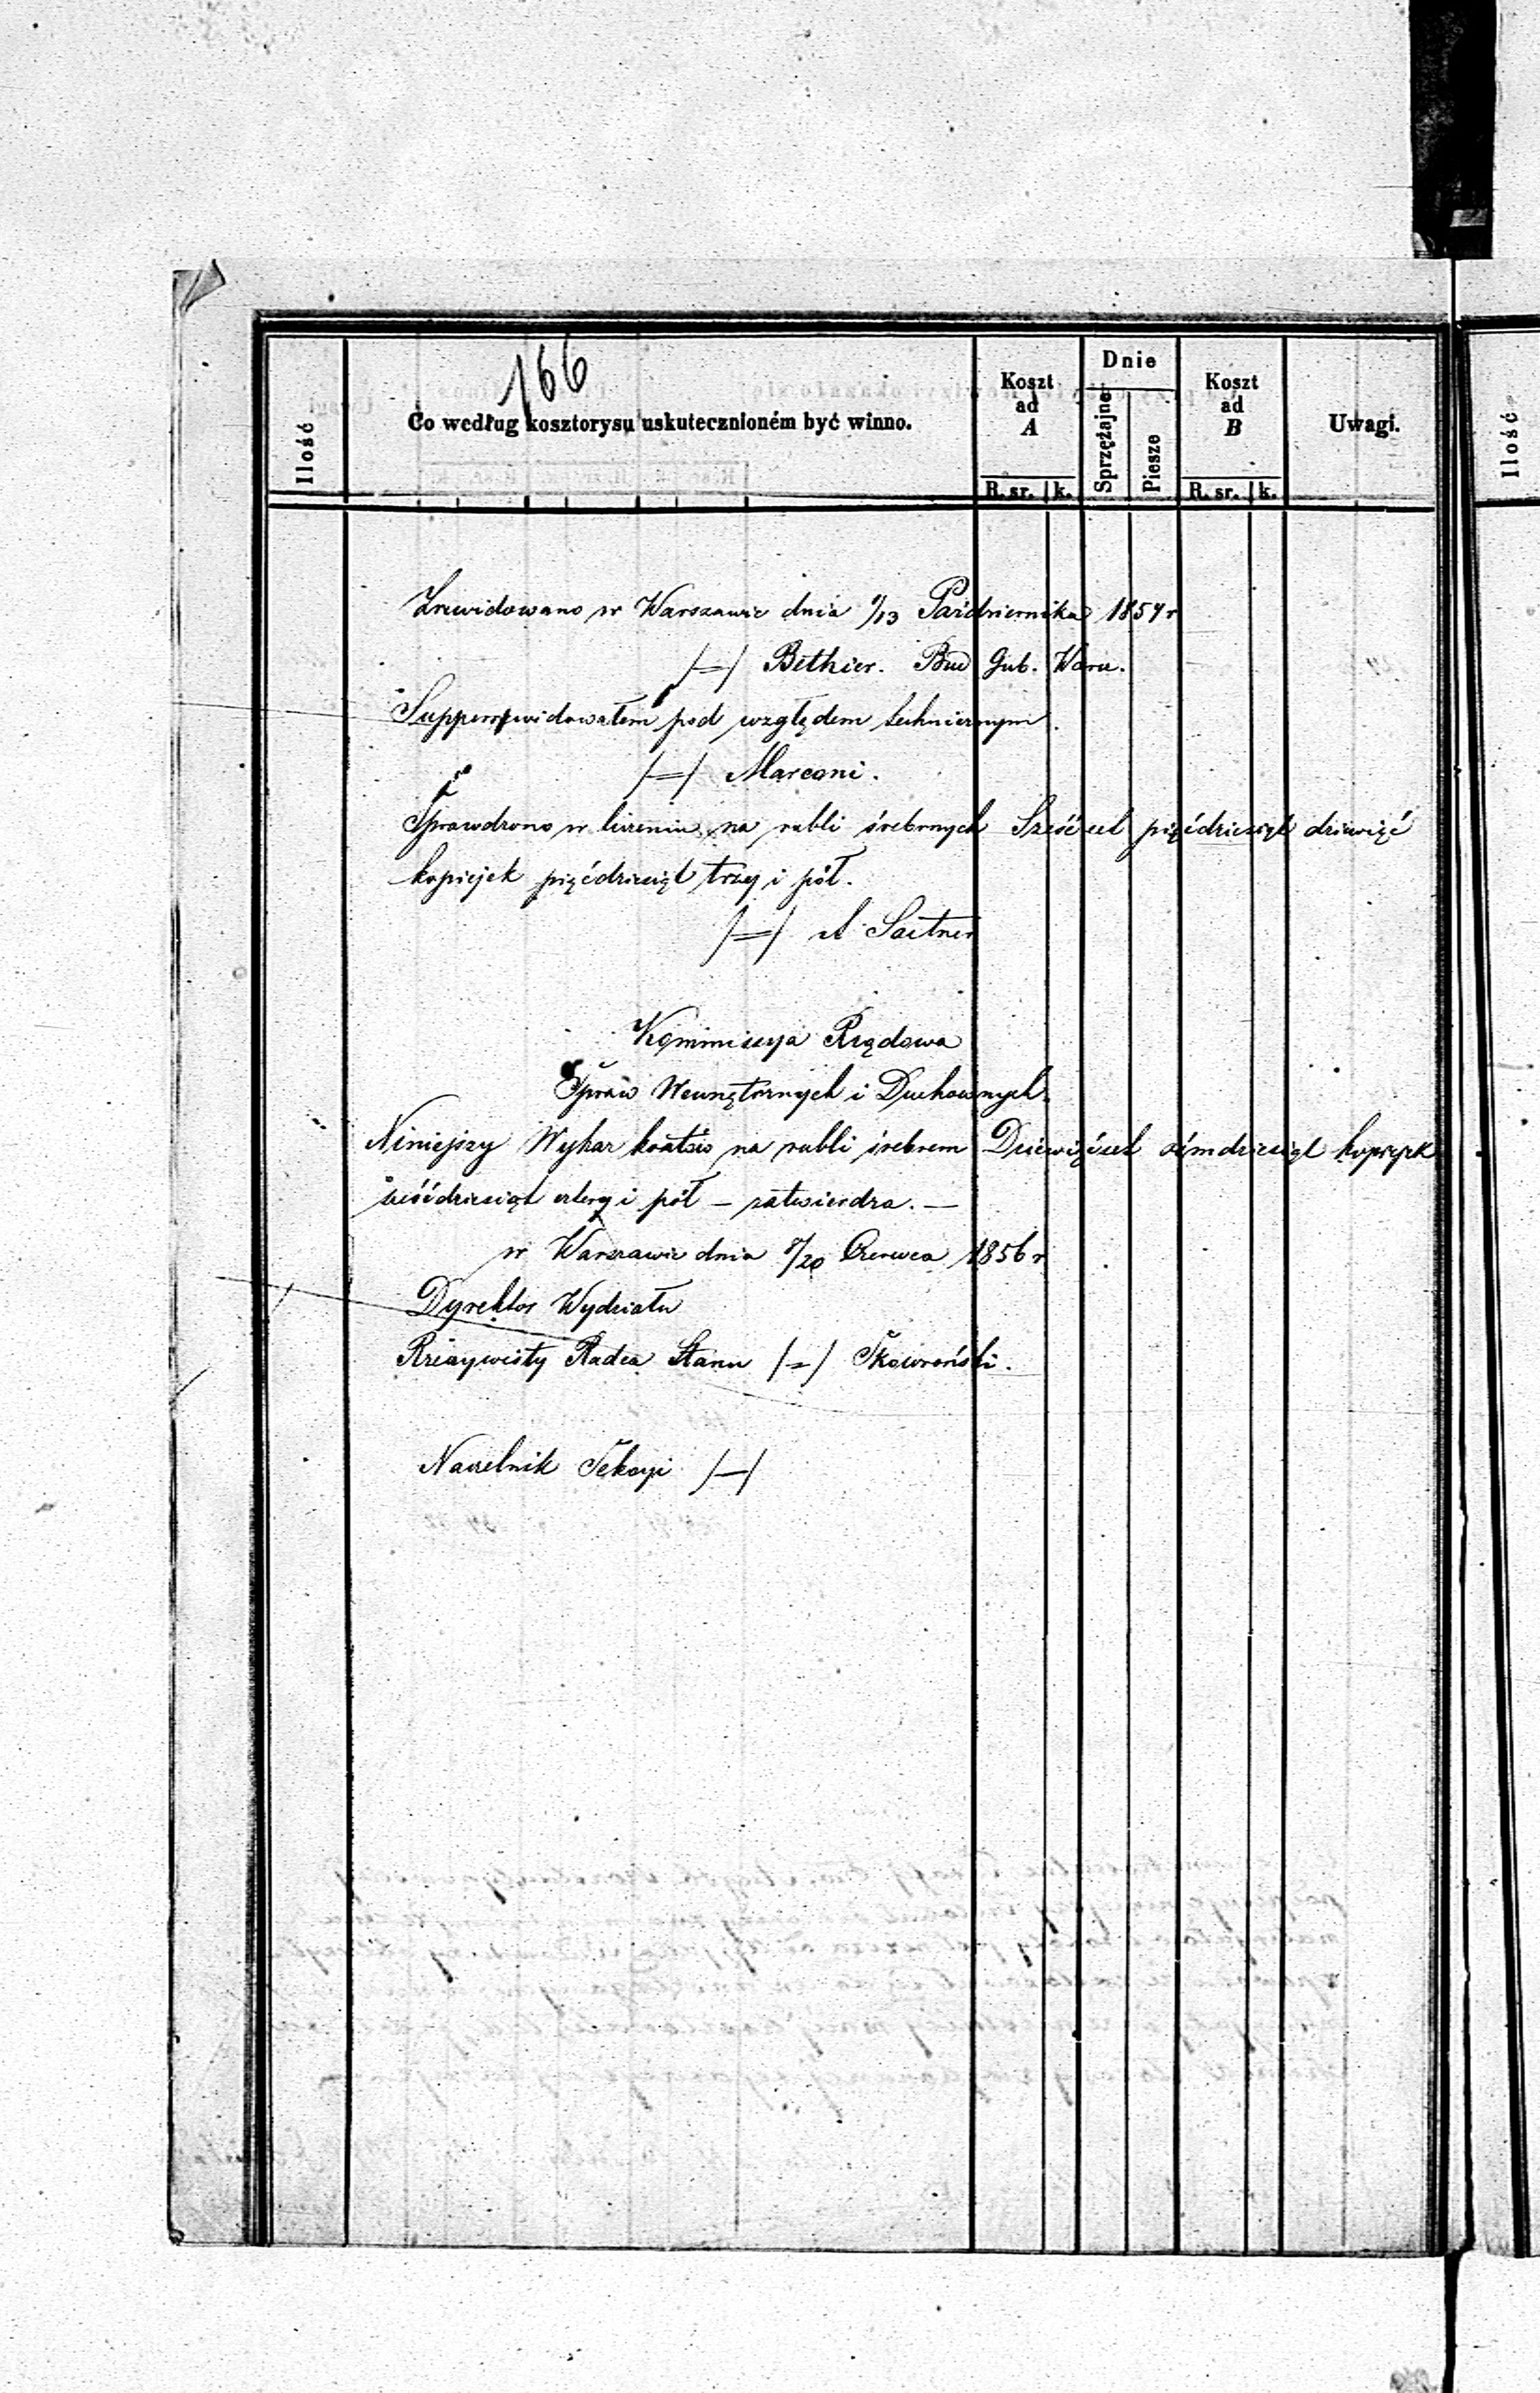 166
Ilość
Co według kosztorysu uskutecznioném być winno.
Koszt ad A
R. sr. k.
Dnie
Sprzężajne
Piesze
Koszt ad B
R. sr. k.
Uwagi.
Ilość
Zrewidowano w Warszawie dnia 1/13 Października 1854 r
/=/ Bethier. Bud Gub. Warsz.
Supperrewidowałem pod względem technicznym.
/=/ Marconi.
Sprawdzono w liczeniu na rubli śrebrnych Sześćset pięćdziesiąt dziewięć
kopiejek pięćdziesiąt trzy i pół.
/=/ A Saitner
Kommissya Rządowa
Spraw Wewnętrznych i Duchownych.
Niniejszy Wykaz kosztów na rubli śrebrem Dziewięćset ośmdziesiąt kopiejek
sześćdziesiąt cztery i pół – zatwierdza. –
w Warszawie dnia 8/20 Czerwca 1856 r
Dyrektor Wydziału
Rzeczywisty Radca Stanu /=/ Skowroński.
Naczelnik Sekcyi /–/